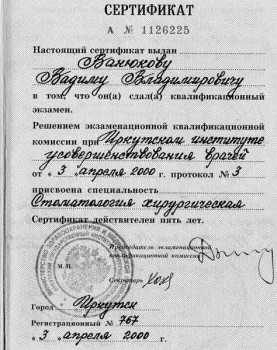 СЕРТИФИКАТ
А № 1126225
Настоящий сертификат выдан
Ванюкову
Вадиму Владимировичу
в том, что он(а) сдал(а) квалификационный
экзамен.
Решением экзаменационной квалификационной
комиссии при Иркутском институте
усовершенствования врачей
от « 3 » апреля 2000 г. протокол № 3
присвоена специальность
Стоматология хирургическая
Сертификат действителен пять лет.
Председатель экзаменационной
квалификационной комиссии
М.П.
Секретарь
Город Иркутск
Регистрационный № 767
« 3 » апреля 2000 г.